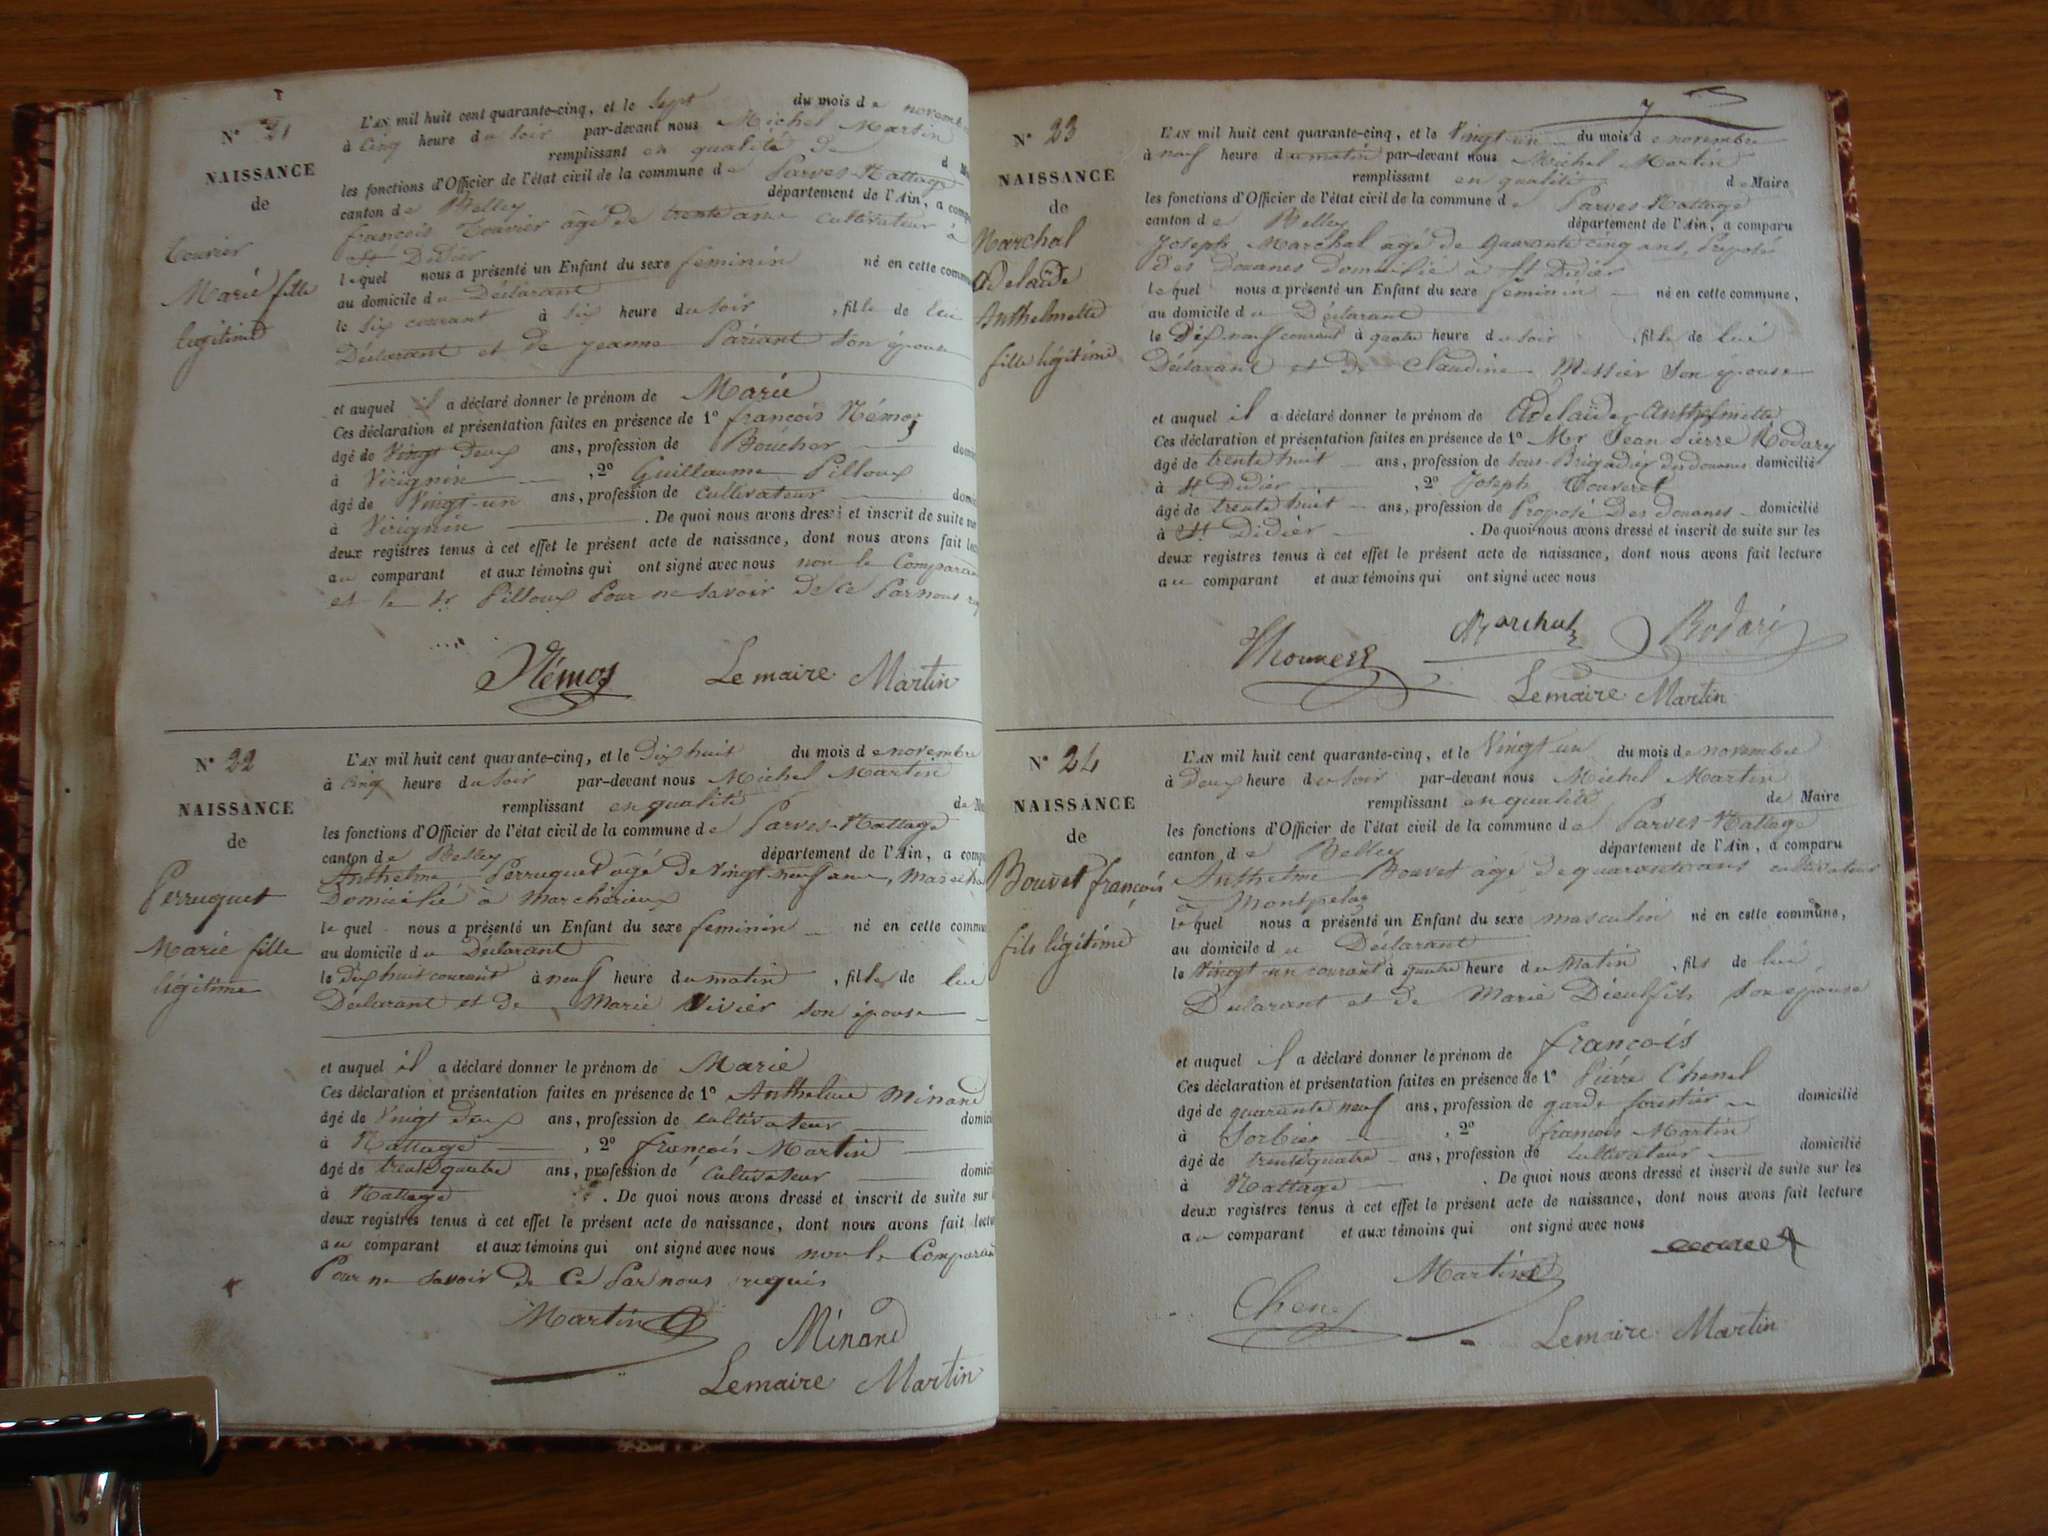 N° 21
NAISSANCE
de
Marie fille
légitime
L'AN mil huit cent quarante-cinq, et le sept du mois de novembre
à cinq heure du soir par-devant nous Michel Martin
remplissant en qualité de
les fonctions d'Officier de l'état civil de la commune de Parves-Nattage
canton de Belley département de l'Ain, a
françois Touvier âgé de trente ans cultivateur à
St Didier
lequel nous a présenté un Enfant du sexe feminin né en cette
au domicile du Déclarant
le six courant à six heure du soir , fille de lui
Déclarant et de jeanne Pariant son épouse
et auquel il a déclaré donner le prénom de Marie
Ces déclaration et présentation faites en présence de 1° françois Némoz
âgé de Vingt deux ans, profession de Boucher
à Virignin , 2° Guillaume Pilloux
âgé de Vingt-un ans, profession de cultivateur
à Virignin . De quoi nous avons dressé et inscrit de suite sur
deux registres tenus à cet effet le présent acte de naissance, dont nous avons fait
au comparant et aux témoins qui ont signé avec nous non le Comparant
et le sr Pilloux Pour ne savoir de ce Par nous
Némoz Lemaire Martin
N° 22
NAISSANCE
de
Perruquet
Marie fille
légitime
L'AN mil huit cent quarante-cinq, et le Dix huit du mois de novembre
à cinq heure du soir par-devant nous Michel Martin
remplissant en qualité de
les fonctions d'Officier de l'état civil de la commune de Parves-Nattage
canton de Belley département de l'Ain, a
Anthelme Perruquet âgé de Vingt neuf ans,
Domicilié à Marchérieux
lequel nous a présenté un Enfant du sexe feminin né en cette
au domicile du Déclarant
le dix huit courant à neuf heure du matin , fille de lui
Declarant et de Marie Vivier son épouse
et auquel il a déclaré donner le prénom de Marie
Ces déclaration et présentation faites en présence de 1° Anthelme Minand
âgé de Vingt deux ans, profession de cultivateur
à Nattage , 2° françois Martin
âgé de trente quatre ans, profession de cultivateur
à Nattage . De quoi nous avons dressé et inscrit de suite sur
deux registres tenus à cet effet le présent acte de naissance, dont nous avons fait
au comparant et aux témoins qui ont signé avec nous non le Comparant
Pour ne savoir de ce Par nous requis
Martin Minand
Lemaire Martin
7
N° 23
NAISSANCE
de
Marchal
Adelaïde
Anthelmette
fille légitime
L'AN mil huit cent quarante-cinq, et le Vingt-un du mois de novembre
à neuf heure du matin par-devant nous Michel Martin
remplissant en qualité de Maire
les fonctions d'Officier de l'état civil de la commune de Parves-Nattage
canton de Belley département de l'Ain, a comparu
Joseph Marchal âgé de Quarante cinq ans, Préposé
des Douanes domicilié à St Didier
lequel nous a présenté un Enfant du sexe feminin né en cette commune,
au domicile du Déclarant
le Dix neuf courant à quatre heure du soir , fille de lui
Déclarant et de Claudine Messier son épouse
et auquel il a déclaré donner le prénom de Adelaïde Anthelmette
Ces déclaration et présentation faites en présence de 1° Mr Jean Pierre Rodary
âgé de trente huit ans, profession de Sous-Brigadier des douanes domicilié
à St Didier , 2° Joseph Touveret
âgé de trente huit ans, profession de Préposé des douanes domicilié
à St Didier . De quoi nous avons dressé et inscrit de suite sur les
deux registres tenus à cet effet le présent acte de naissance, dont nous avons fait lecture
au comparant et aux témoins qui ont signé avec nous
Marchal Rodari
Lemaire Martin
N° 24
NAISSANCE
de
Bouvet françois
fils légitime
L'AN mil huit cent quarante-cinq, et le Vingt un du mois de novembre
à Deux heure du soir par-devant nous Michel Martin
remplissant en qualité de Maire
les fonctions d'Officier de l'état civil de la commune de Parves-Nattage
canton de Belley département de l'Ain, a comparu
Anthelme Bouvet âgé de quarante ans cultivateur
à Montpelaz
lequel nous a présenté un Enfant du sexe masculin né en cette commune,
au domicile du Déclarant
le Vingt-un courant à quatre heure du matin , fils de lui
Declarant et de Marie Dieulfils son épouse
et auquel il a déclaré donner le prénom de françois
Ces déclaration et présentation faites en présence de 1° Pierre Chenel
âgé de quarante neuf ans, profession de garde forestier domicilié
à Sorbier , 2° françois Martin
âgé de trente quatre ans, profession de cultivateur domicilié
à Nattage . De quoi nous avons dressé et inscrit de suite sur les
deux registres tenus à cet effet le présent acte de naissance, dont nous avons fait lecture
au comparant et aux témoins qui ont signé avec nous
Martin
Chenel
Lemaire Martin